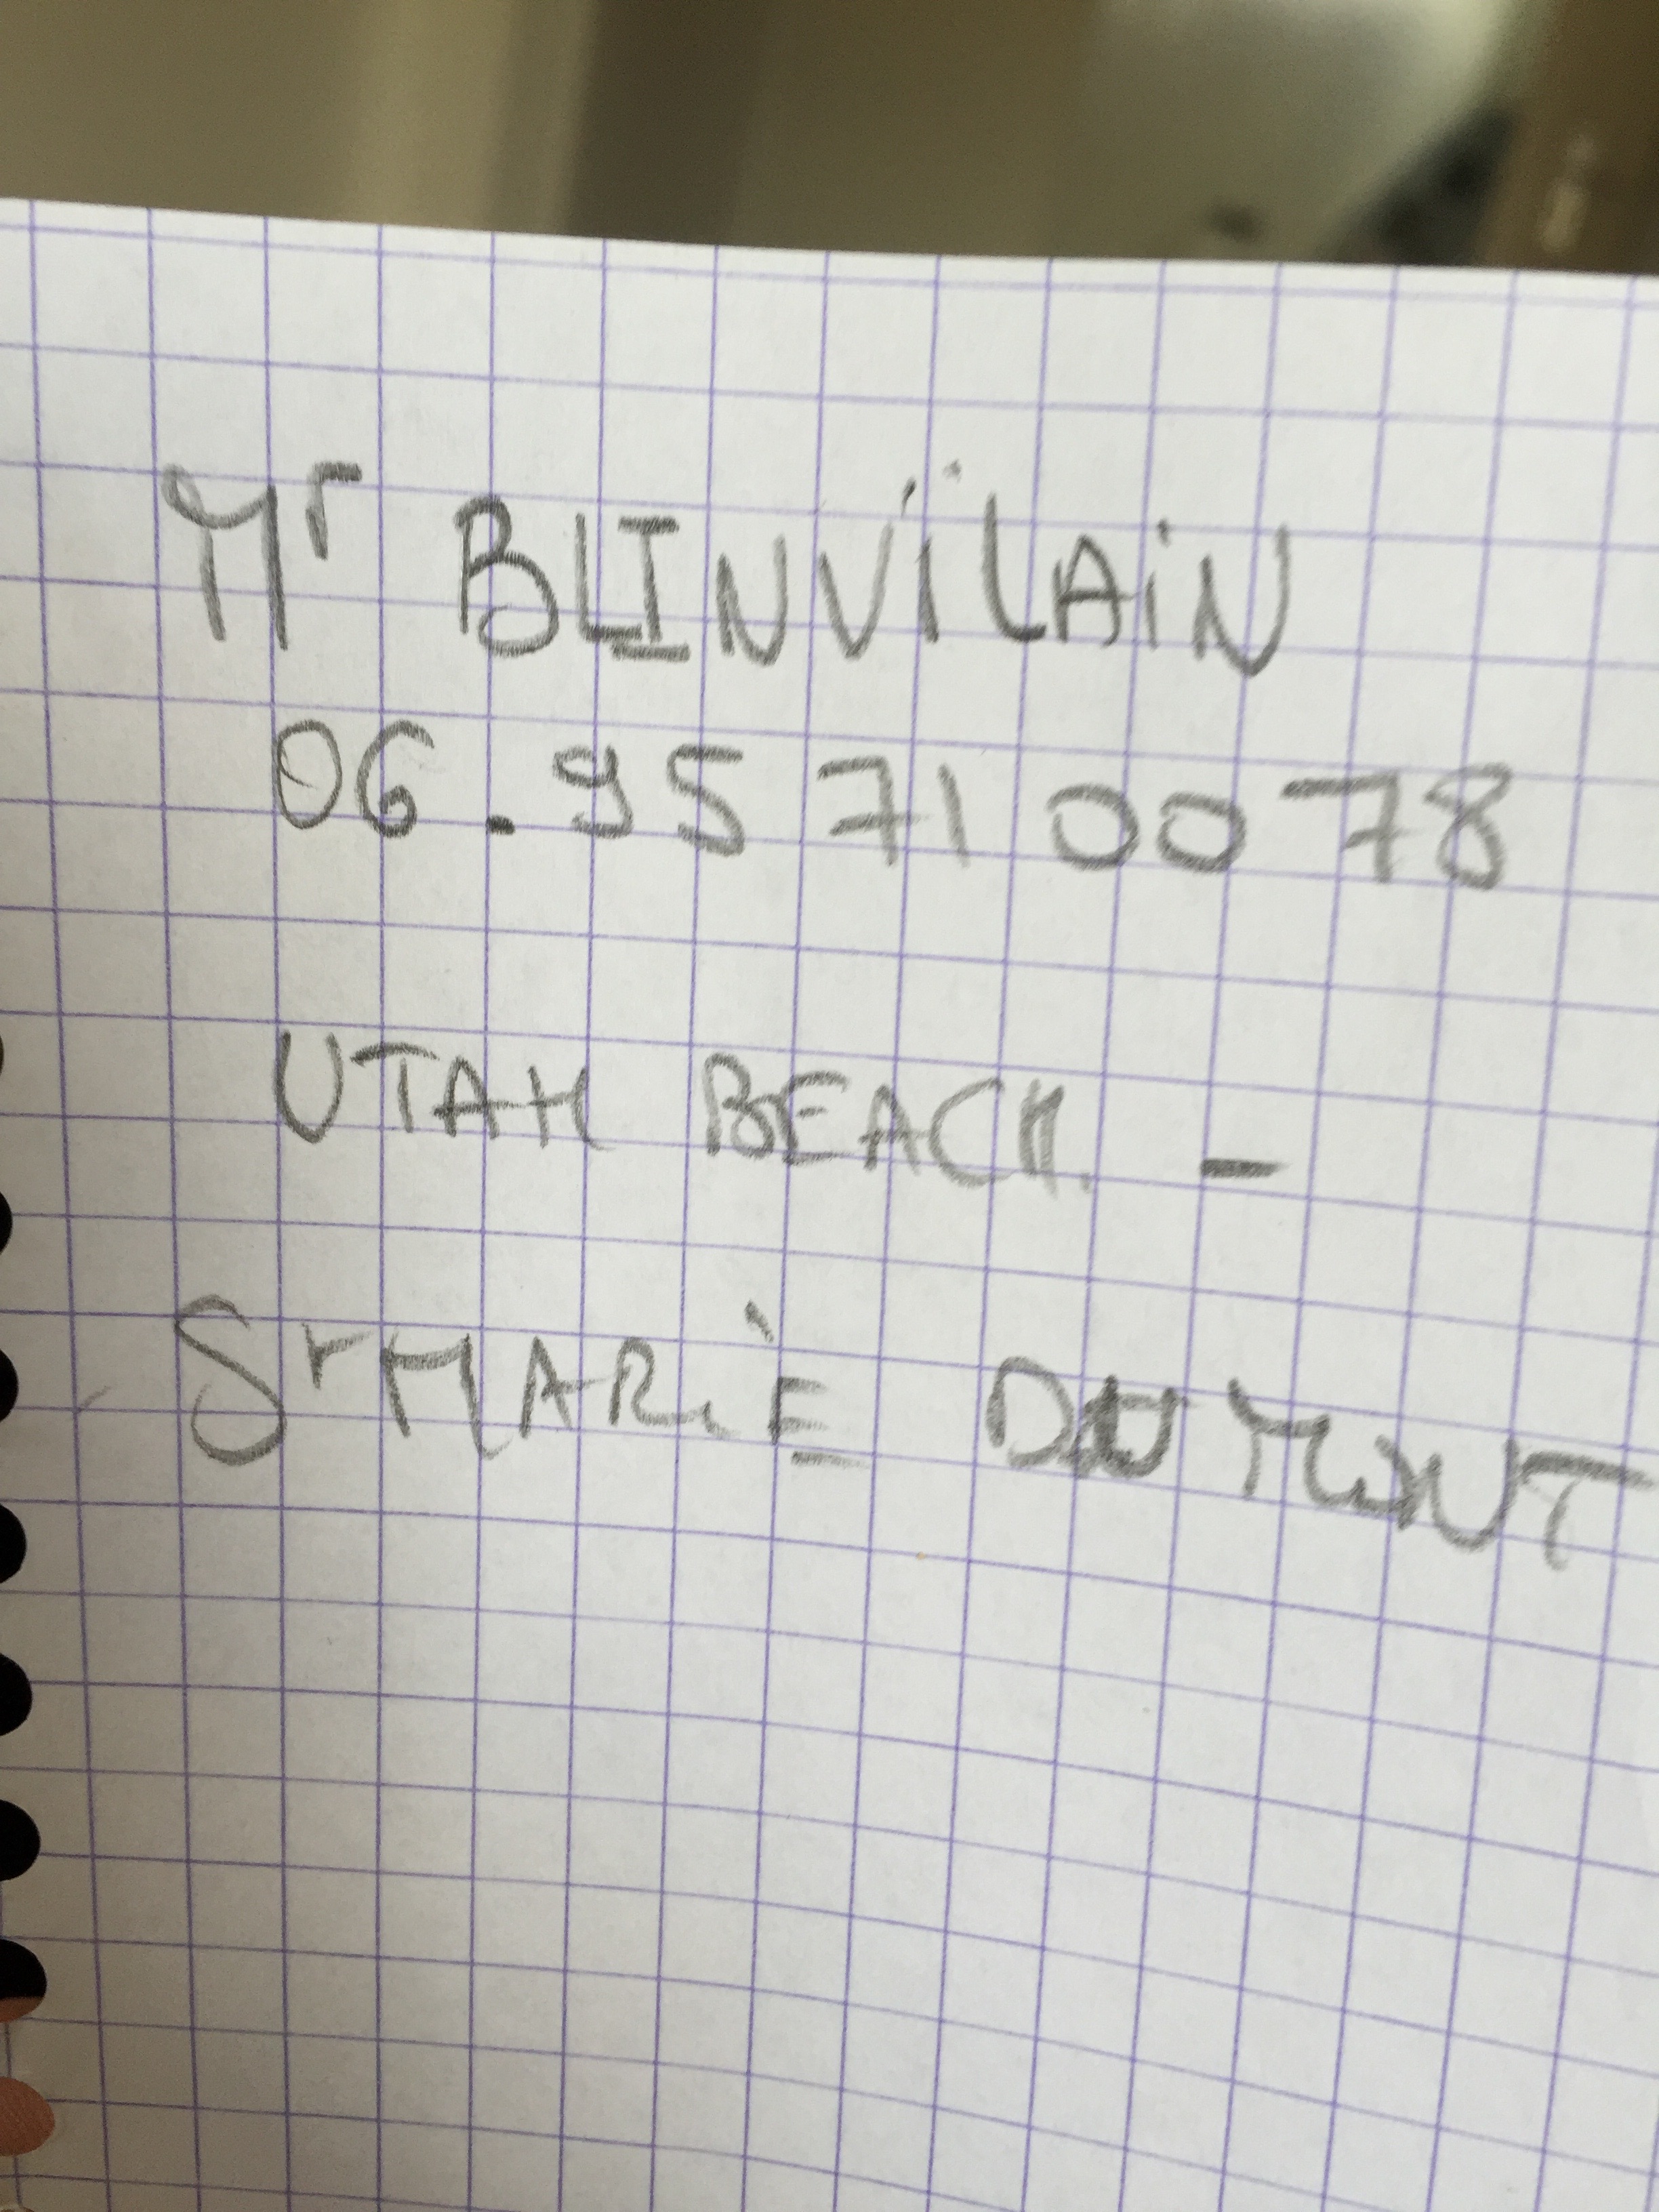 Mr BLINVILAIN
06.95 71 00 78
UTAH BEACH. -
St MARIE DU MONT